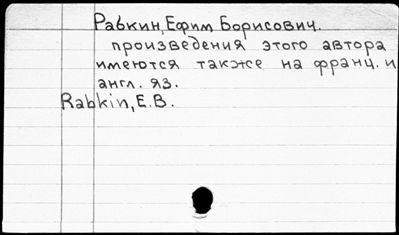 Рабкин, Ефим Борисович.
произведения этого автора
имеются также на франц. и
англ. яз.
Rabkin, E.B.